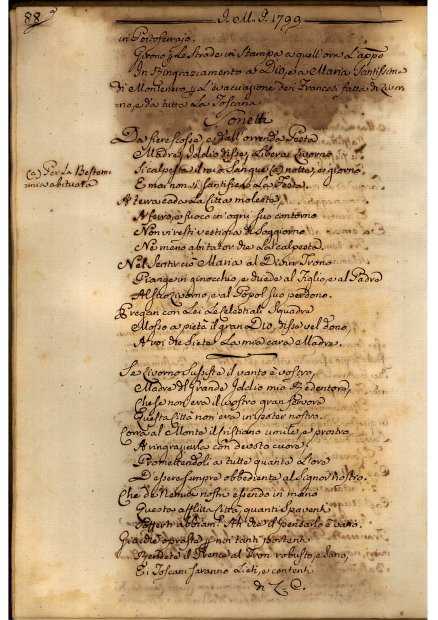 88
J. M. J. 1799
in Portoferraio.
Girono p le Strade in Stampa a quell'ora l'appo
In Ringraziamento a Dio, e a Maria Santissima
di Montenero p l'evacuazione dei Francesi fatta di Livor
no, e da tutta la Toscana
Sonetti
Da fiere scosse, e dall'orrenda Peste
Madre, Iddio disse, liberai Livorno
Si calpesta il mio Sangue (a) notte, e giorno
E mai non si santifica la Festa.
(a) Per la Bestem
mia abituata
A terra cada la Città molesta,
A ferro, e fuoco in ogni suo contorno
Non vi resti vestigia di soggiorno
Ne meno abitator che la calpesta.
Nel sentir ciò Maria al Divin Trono
Piange in ginocchio, e chiede al Figlio, e al Padre
Al suo Livorno, e al Popol suo perdono.
Pregan con Lei le Celestiali Squadre
Mosso a pietà il gran Dio, disse vel dono,
A voi che siete la mia cara Madre.
Se Livorno sussiste il vanto è vostro,
Madre del Grande Iddio mio Redentore,
Che se non era il vostro gran fervore
Questa Città non era in poter nostro.
Corra al Monte il Cristiano umile, e prostro
A ringraziarla con devoto cuore,
Promettendoli a tutte quante l'ore
D'essere sempre obbediente al Signor Nostro.
Che di Nemici nostri essendo in mano
Questa afflitta Città, quanti spaventi
Sofferti abbiam! Ah che il pensarlo è vano.
Giacchè oprasti p noi tanti portenti
Rendete il Prence al Tron robusto, e sano,
E i Toscani saranno lieti, e contenti.
di L. C.